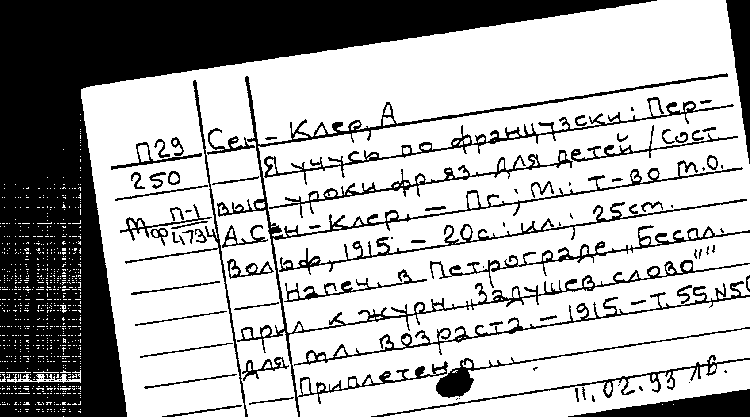 П29
250
Мф П-1/4734
Сен-Клер, А
Я учусь по французски: Пер-
вые уроки фр.яз. для детей / Сост
А.Сен-Клер. — Пг.; М.: Т-во М.О.
Вольф, 1915. — 20с.: ил.; 25см.
Напеч. в Петрограде. „Беспл.
прил к журн. „Задушев. слово""
для мл. возраста. — 1915. — Т.55, N50
Приплетено...
11.02.93 Лв.